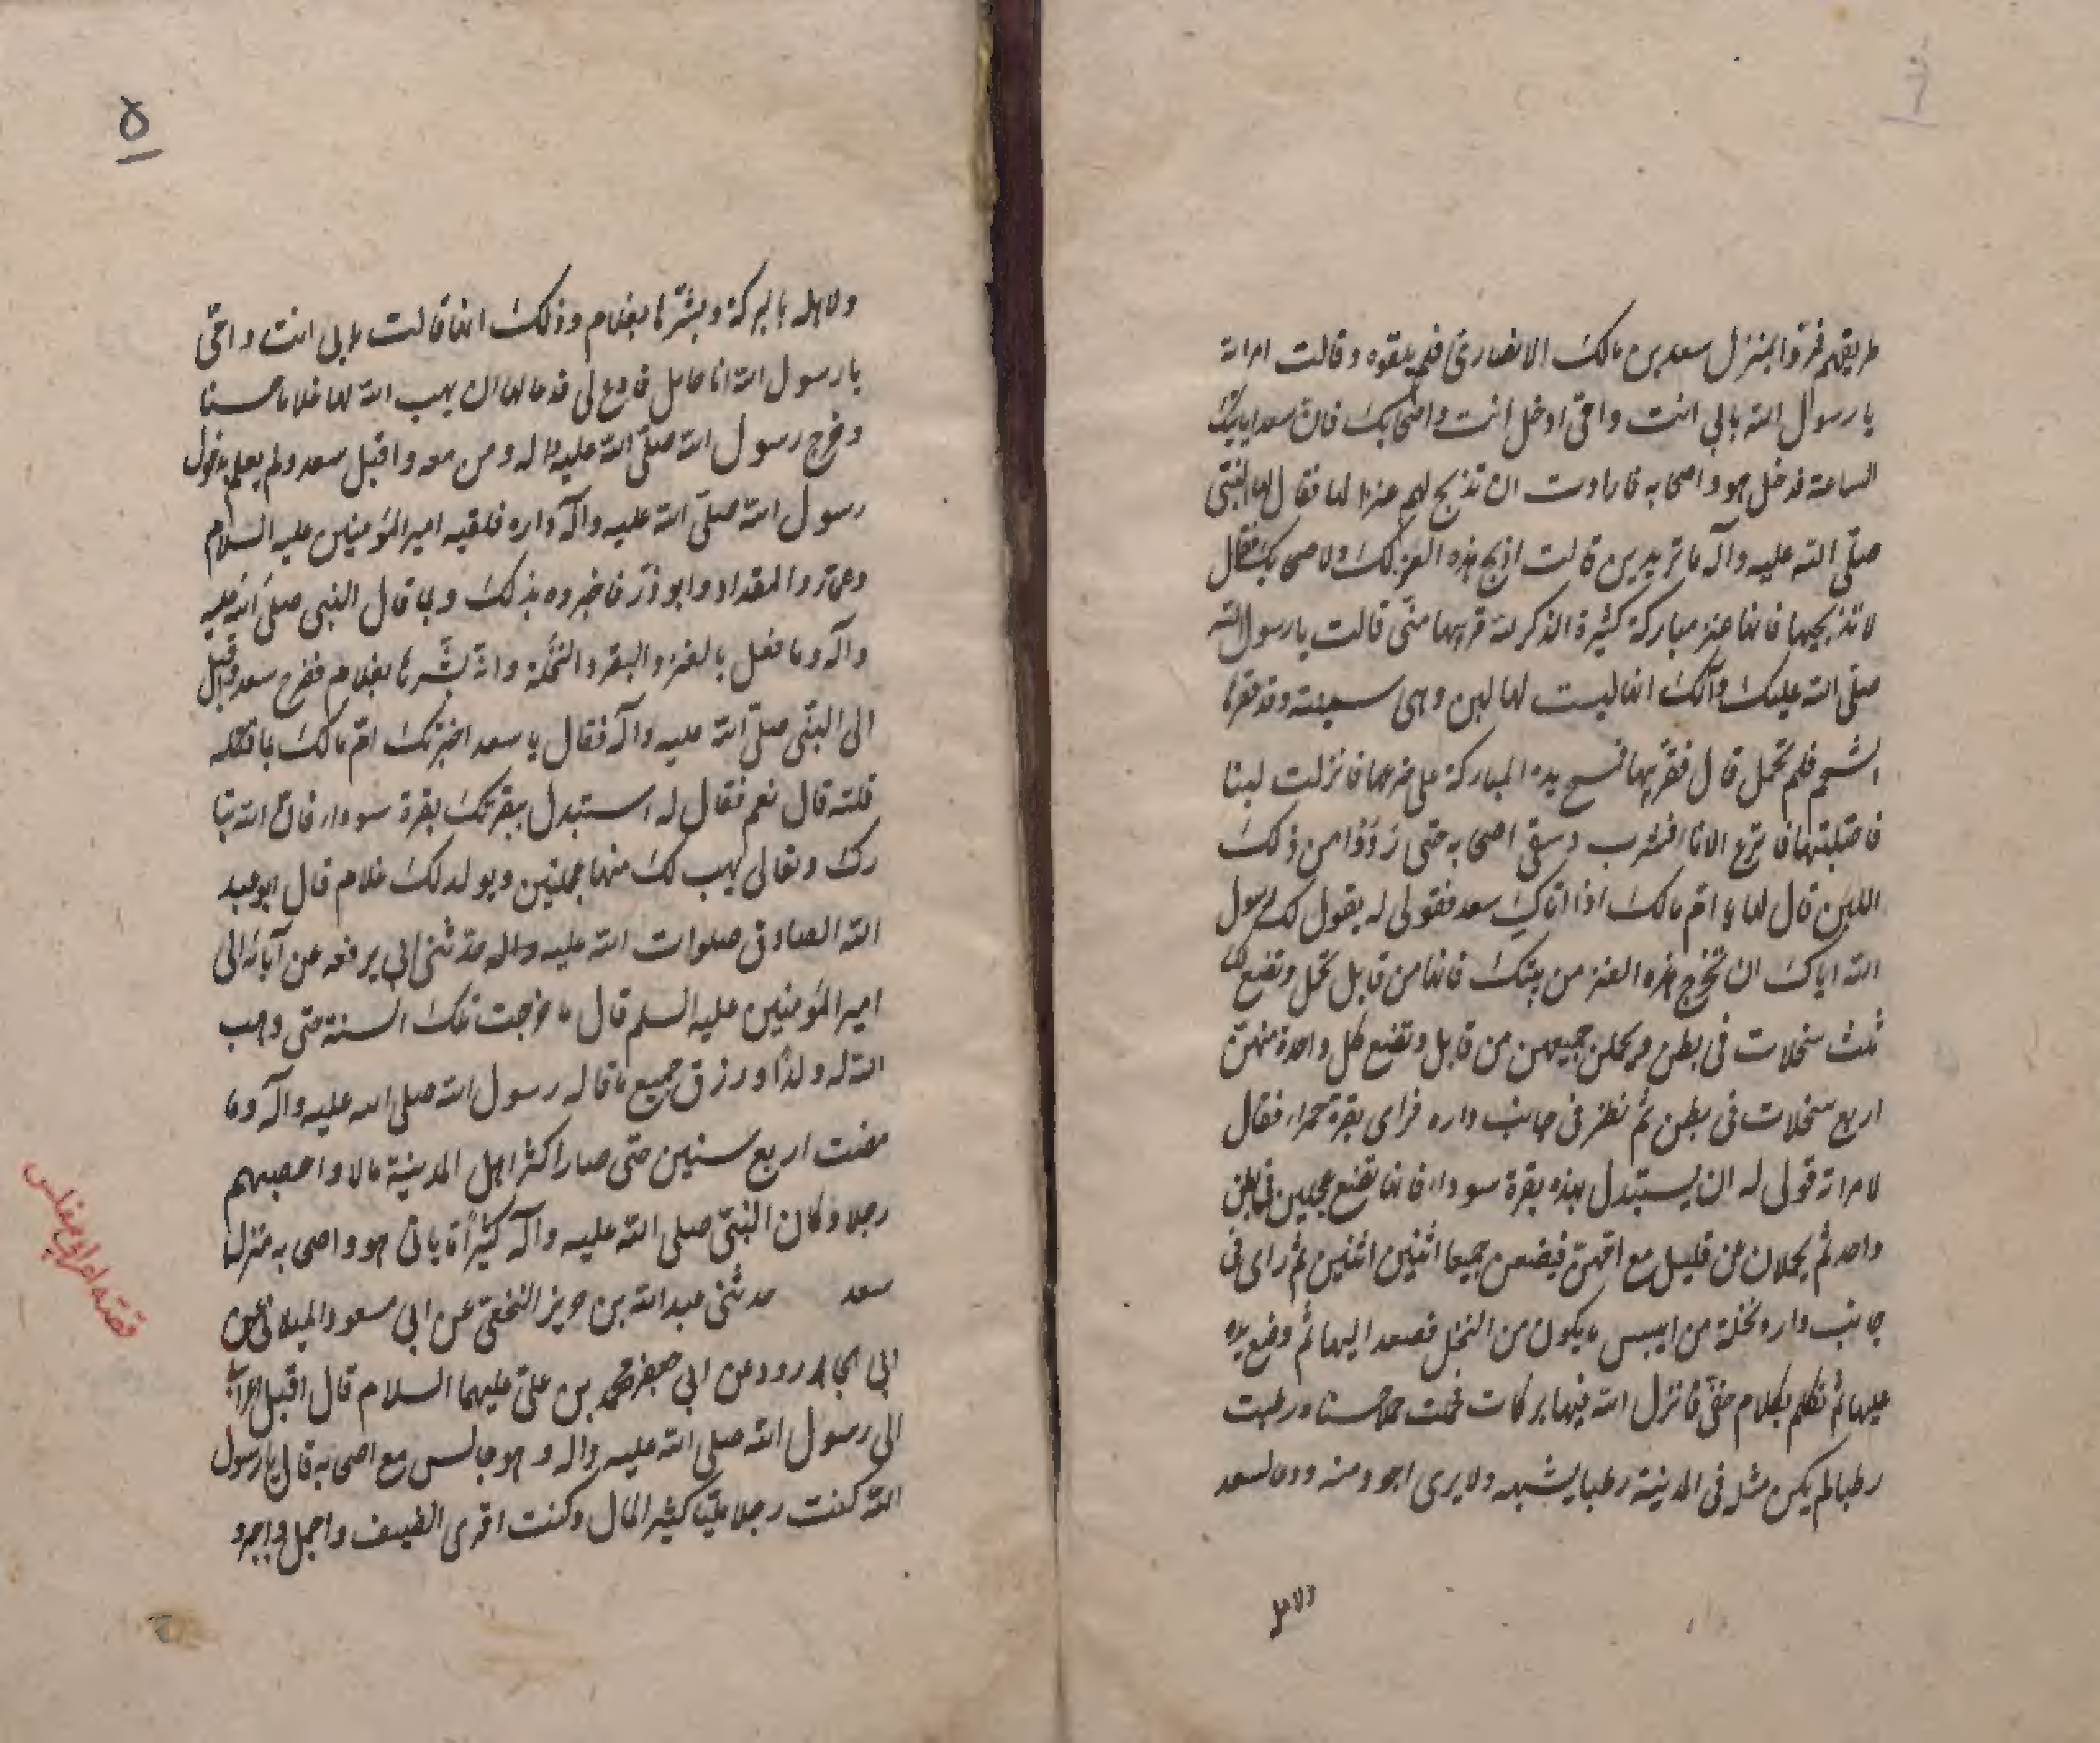 طريقهم فمروا بمنزل سعد بن مالك الانصاري فلم يلقوه وقالت امراته
يا رسول الله بابي انت وامي ادخل انت واصحابك فان سعدا ياتيك
الساعة فدخل هو واصحابه فارادت ان تذبح لهم عنزا لها فقال لها النبي
صلى الله عليه وآله ما تريدين قالت اذبح هذه العنز لك ولاصحابك فقال
لا تذبحيها فانها عنز مباركة كثيرة الذكر لله قربيها مني قالت يا رسول الله
صلى الله عليك وآلك انها ليست لها لبن وهي سمينة وقد عقرها
الشحم فلم تحمل قال فقربيها فمسح يده المباركة على ضرعها فانزلت لبنا
فاحتلبتها فاترع الاناء فشرب وسقى اصحابه حتى رووا من ذلك
اللبن قال لها يا ام مالك اذا اتاك سعد فقولي له يقول لك رسول
الله اياك ان تخرج هذه العنز من بيتك فانها من قابل تحمل وتضع لك
ثلث سخلات في بطن ويحملن جميعهن من قابل وتضع كل واحدة منهن
اربع سخلات في بطن ثم نظر في جانب داره فراى بقرة حمراء فقال
لامراته قولي له ان يستبدل بهذه بقرة سوداء فانها تضع عجلين في بطن
واحد ثم يحملان من قليل مع امهن فيضعن جميعا اثنين اثنين ثم راى في
جانب داره نخلة من ايبس ما يكون من النخل فصعد اليها ثم وضع يده
عليها ثم تكلم بكلام خفي فانزل الله فيها بركات فحملت حملا حسنا ورطبت
رطبا لم يكن مثله في المدينة رطبا يشبهه ولا يرى اجود منه ودعا لسعد
ولاهله
٥
ولاهله بالبركة وبشرها بغلام وذلك انها قالت بابي انت وامي
يا رسول الله انا حامل فادع لي فدعا لها ان يهب الله لها غلاما حسنا
وخرج رسول الله صلى الله عليه واله ومن معه واقبل سعد ولم يعلم بدخول
رسول الله صلى الله عليه وآله داره فلقيه امير المؤمنين عليه السلام
وعمار والمقداد وابو ذر فاخبروه بذلك وبما قال النبي صلى الله عليه
وآله وما فعل بالعنز والبقر والنخلة وانه بشرها بغلام ففرح سعد واقبل
الى النبي صلى الله عليه وآله فقال يا سعد اخبرتك ام مالك بما قلته
قلته قال نعم فقال له استبدل ببقرتك بقرة سوداء فان الله تبا
رك وتعالى يهب لك منها عجلين ويولد لك غلام قال ابو عبد
الله الصادق صلوات الله عليه واله حدثني ابي يرفعه عن آبائه الى
امير المؤمنين عليه السلم قال ما خرجت تلك السنة حتى وهب
الله له ولدا ورزق جميع ما قاله رسول الله صلى الله عليه وآله وما
مضت اربع سنين حتى صار اكثر اهل المدينة مالا واخصبهم
رحلا وكان النبي صلى الله عليه وآله كثيرا ما ياتي هو واصحابه منزل
سعد حدثني عبد الله بن حريز النخعي عن ابي مسعود الميلاني عن
ابي الجارود عن ابي جعفر محمد بن علي عليهما السلام قال اقبل اعرابي
الى رسول الله صلى الله عليه واله وهو جالس مع اصحابه قال يا رسول
الله كنت رجلا مليا كثير المال وكنت اقري الضيف واحمل واجود
قصة اعرابي مفلس